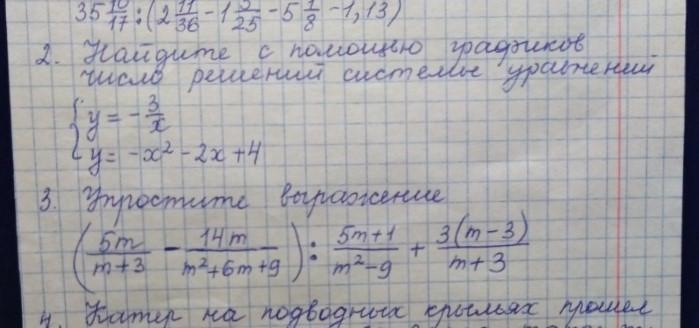 35 10/17 : (2 11/36 - 1 3/25 - 5 1/8 - 1,13)
2. Найдите с помощью графиков
число решений системы уравнений
{ y = - 3/x
y = -x² - 2x + 4
3. Упростите выражение
(5m/(m+3) - 14m/(m²+6m+9)) : (5m+1)/(m²-9) + 3(m-3)/(m+3)
4. Катер на подводных крыльях прошел